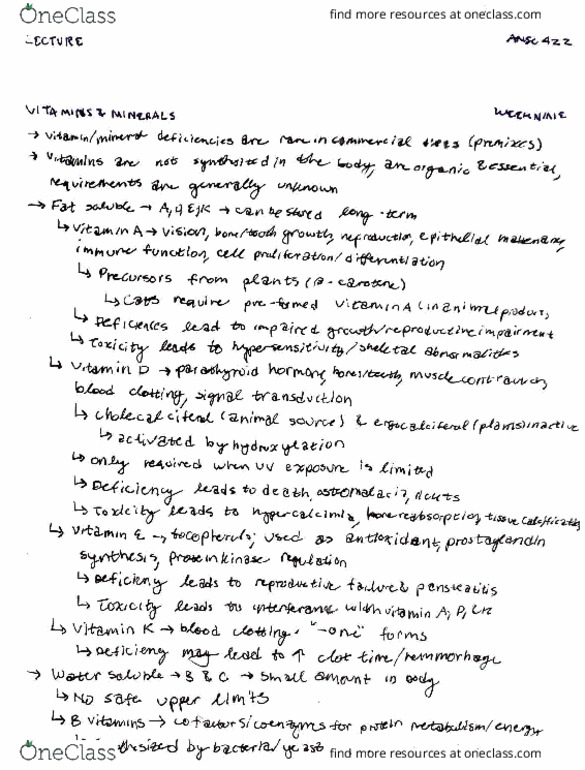 OneClass find more resources at oneclass.com
LECTURE ANSC 422
VITAMINS & MINERALS WEEK NINE
→ vitamin/mineral deficiencies are rare in commercial diets (premixes)
→ vitamins are not synthesized in the body, are organic & essential,
requirements are generally unknown
→ Fat soluble → A, D, E, K → can be stored long-term
↳ Vitamin A → vision, bone/tooth growth, reproduction, epithelial
immune function, cell proliferation/differentiation
↳ Precursors from plants (B-carotene)
↳ Cats require pre-formed vitamin A (in animal products
↳ Deficiences lead to impaired growth/reproductive impairment
↳ Toxicity leads to hypersensitivity/skeletal abnormalities
↳ Vitamin D → parathyroid hormone, bones/teeth, muscle contraction,
blood clotting, signal transduction
↳ cholecalciferol (animal source) & ergocalciferol (plants) inactive
↳ activated by hydroxylation
↳ only required when UV exposure is limited
↳ Deficiency leads to death, ostomalacia,
↳ Toxicity leads to hypercalcimia, bone reabsorption, tissue calcification
↳ Vitamin E → tocopherols; used as antioxidant, prostaglandin
synthesis, protein kinase regulation
↳ Deficieny leads to reproductive failure & pansteatitis
↳ Toxicity leads to interferance with vitamin A, D, & K
↳ Vitamin K → blood clotting. "-one" forms
↳ Deficieny may lead to ↑ clot time/hemmorhage
→ Water soluble → B & C → small amount in body
↳ No safe upper limits
↳ B vitamins → cofactors/coenzymes for protein metabolism/energy
by bacteria/yeast
OneClass find more resources at oneclass.com